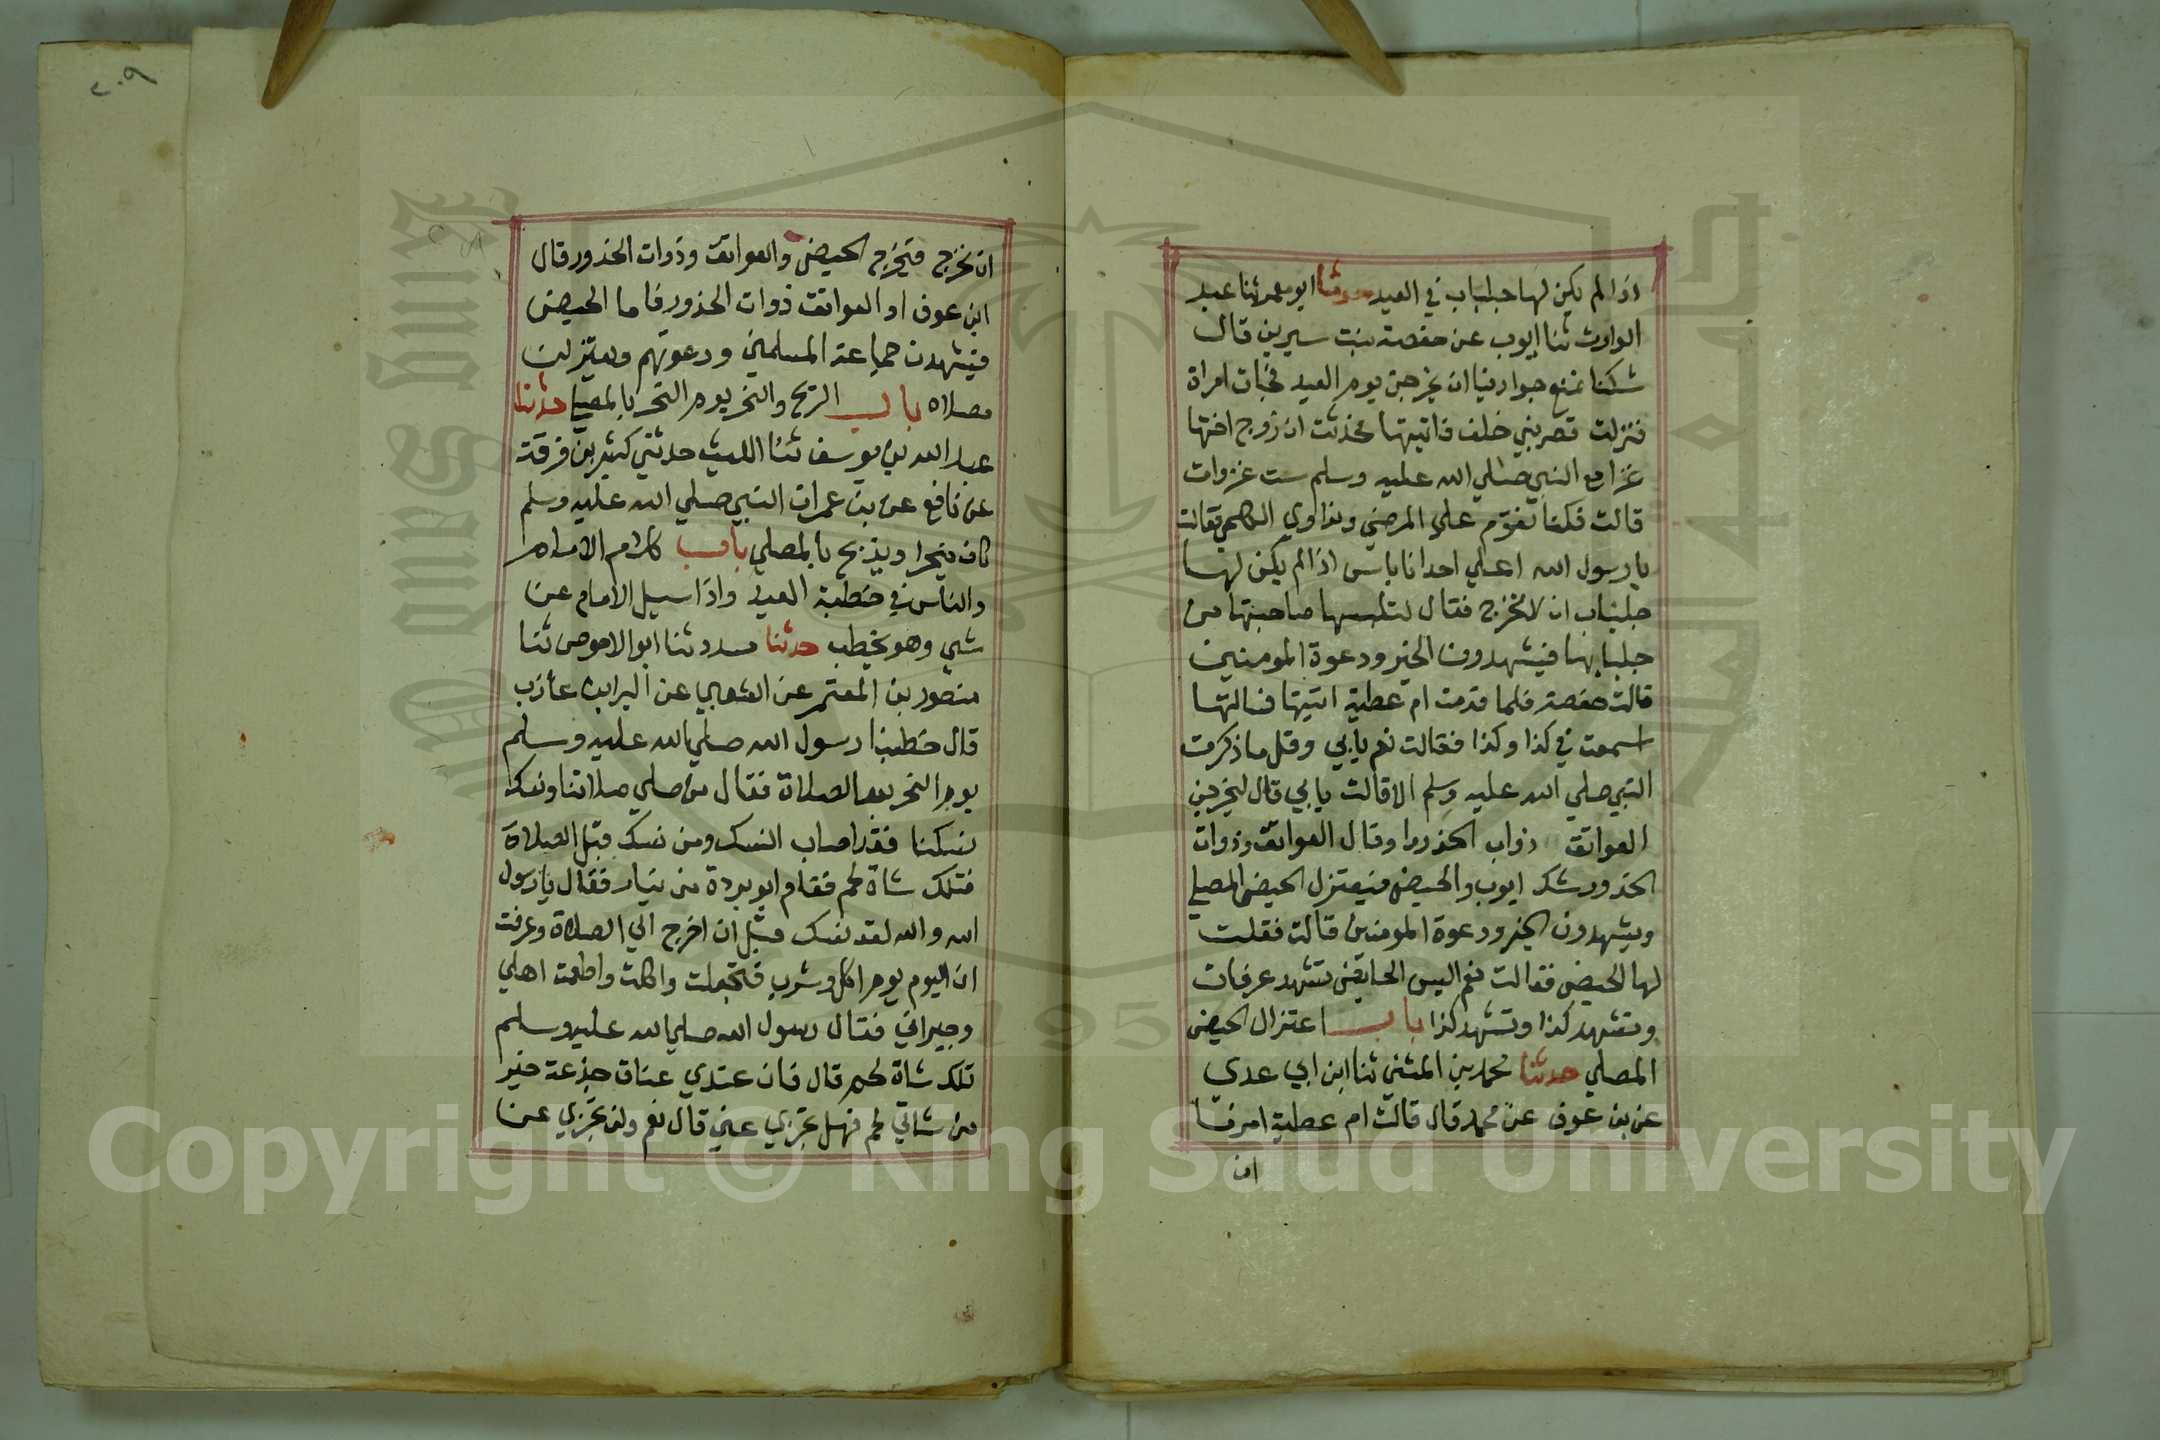 اذا لم يكن لها جلباب في العيد حدثنا ابو معمر ثنا عبد
الوارث ثنا ايوب عن حفصة بنت سيرين قالت
كنا نمنع جوارينا ان يخرجن يوم العيد فجات امراة
فنزلت قصر بني خلف فاتيتها فحدثت ان زوج اختها
غزا مع النبي صلي الله عليه وسلم ست غزوات
قالت فكنا نقوم علي المرضي ونداوي الكلمي فقالت
يا رسول الله اعلي احدانا باس اذا لم يكن لها
جلباب ان لا تخرج فقال لتلبسها صاحبتها من
جلبابها فيشهدون الخير ودعوة المومنين
قالت حفصة فلما قدمت ام عطية اتيتها فسالتها
اسمعت في كذا وكذا فقالت نعم بابي وقل ما ذكرت
النبي صلي الله عليه وسلم الا قالت بابي قال ليخرجن
العواتق ذوات الخدور او قال العواتق وذوات
الخدور شك ايوب والحيض فيعتزل الحيض المصلي
ويشهدون الخير ودعوة المومنين قالت فقلت
لها الحيض فقالت نعم اليس الحايض تشهد عرفات
وتشهد كذا وتشهد كذا باب اعتزال الحيض
المصلي حدثنا محمد بن المثني ثنا ابن ابي عدي
عن بن عوف عن محمد قال قالت ام عطية امرنا
ان
٢٠٩
ان نخرج فتخرج الحيض والعواتق وذوات الخدور قال
ابن عوف او العواتق ذوات الخدور فاما الحيض
فيشهدن جماعة المسلمين ودعوتهم ويعتزلن
مصلاه باب الذبح والنحر يوم النحر بالمصلي حدثنا
عبد الله بن يوسف ثنا الليث حدثني كثير بن فرقد
عن نافع عن بن عمر ان النبي صلي الله عليه وسلم
كان ينحر او يذبح بالمصلي باب كلام الامام
والناس في خطبة العيد واذا سيل الامام عن
شي وهو يخطب حدثنا مسدد ثنا ابو الاحوص ثنا
منصور بن المعتمر عن الشعبي عن البرا بن عازب
قال خطبنا رسول الله صلي الله عليه وسلم
يوم النحر بعد الصلاة فقال من صلي صلاتنا ونسك
نسكنا فقد اصاب النسك ومن نسك قبل الصلاة
فتلك شاة لحم فقام ابو بردة بن نيار فقال يا رسول
الله والله لقد نسكت قبل ان اخرج الي الصلاة وعرفت
ان اليوم يوم اكل وشرب فتعجلت واكلت واطعمت اهلي
وجيراني فقال رسول الله صلي الله عليه وسلم
تلك شاة لحم قال فان عندي عناق جذعة خير
من شاتي لحم فهل تجزي عني قال نعم ولن تجزي عن
Copyright © King Saud University
1957